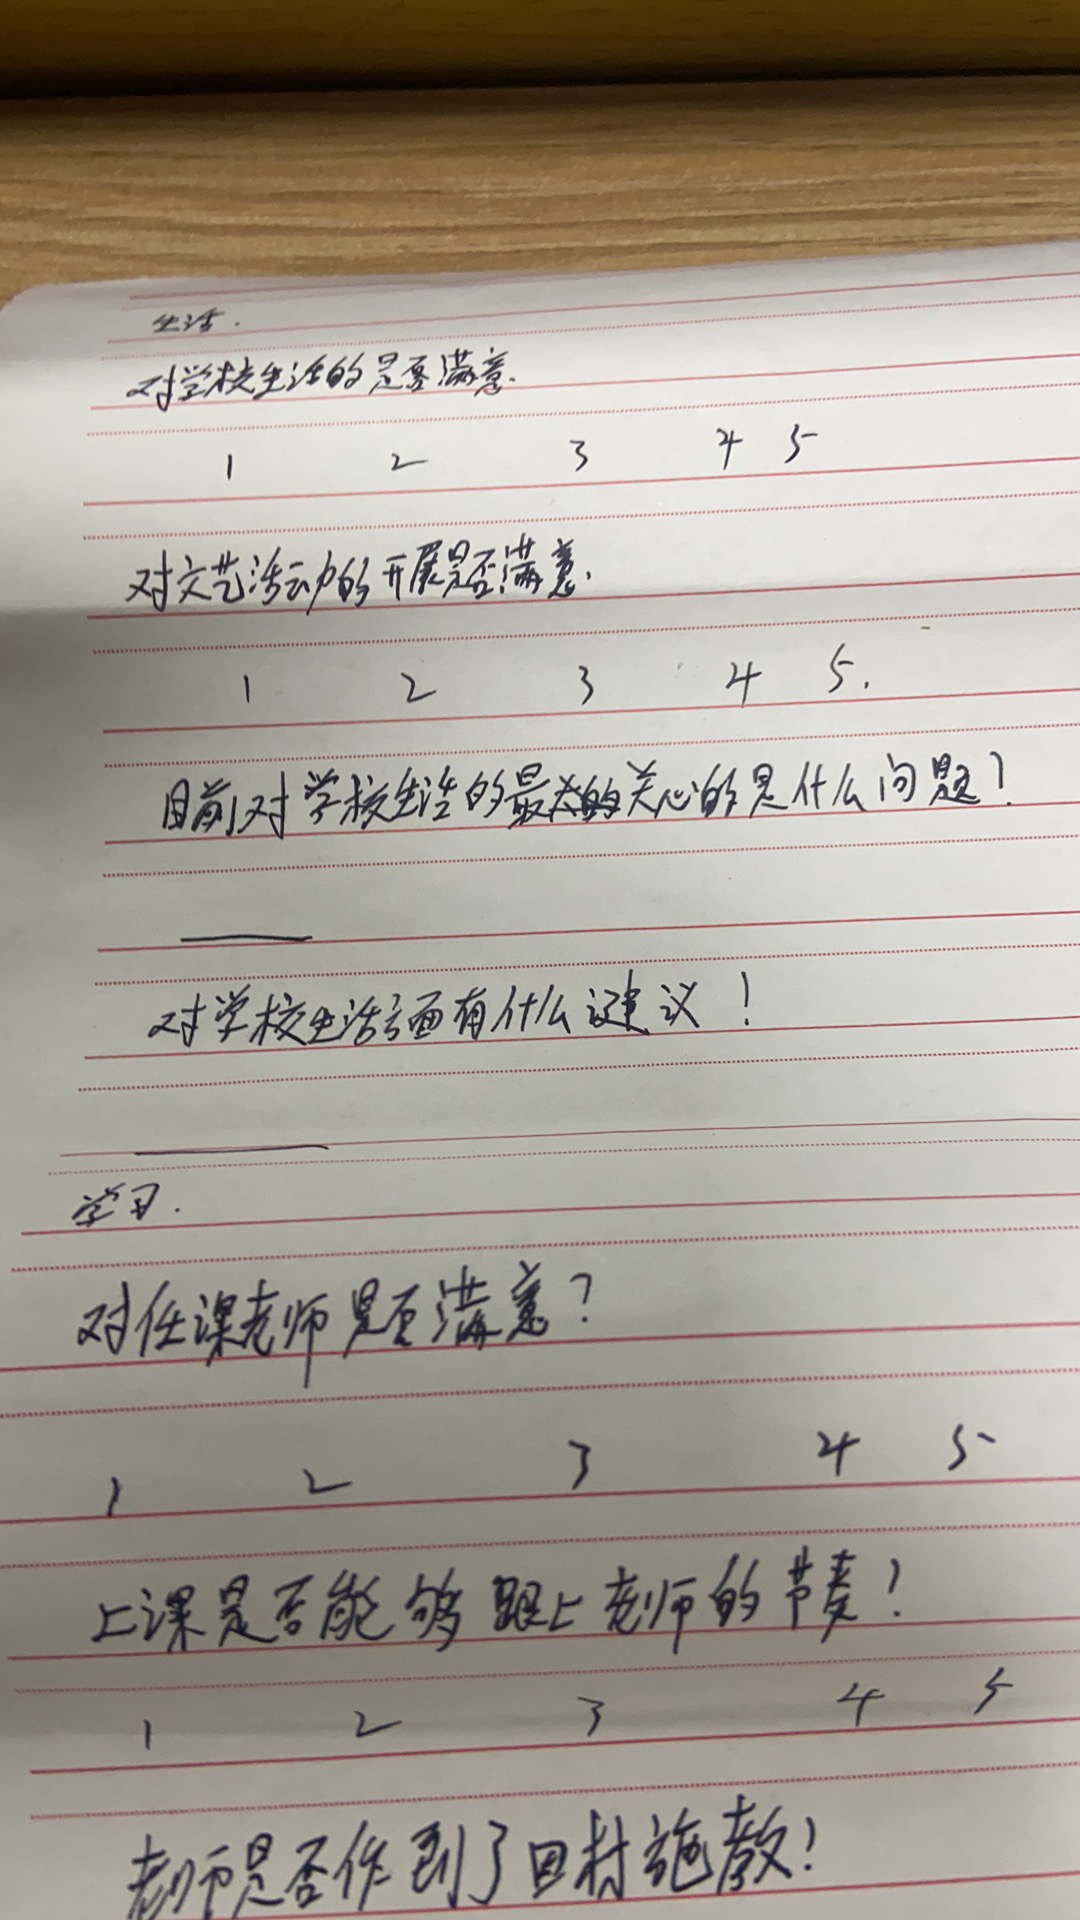 生活.
对学校生活的是否满意.
1 2 3 4 5
对文艺活动的开展是否满意.
1 2 3 4 5.
目前对学校生活的最关心的是什么问题?
对学校生活方面有什么建议!
学习.
对任课老师是否满意?
1 2 3 4 5
上课是否能够跟上老师的节奏?
1 2 3 4 5
老师是否作到了因材施教?